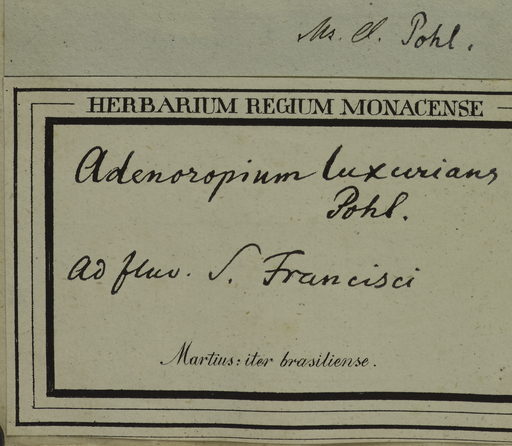 Ms. Cl. Pohl.
HERBARIUM REGIUM MONACENSE
Adenoropium luxurians
Pohl.
Ad fluv. S. Francisci
Martius: iter brasiliense.